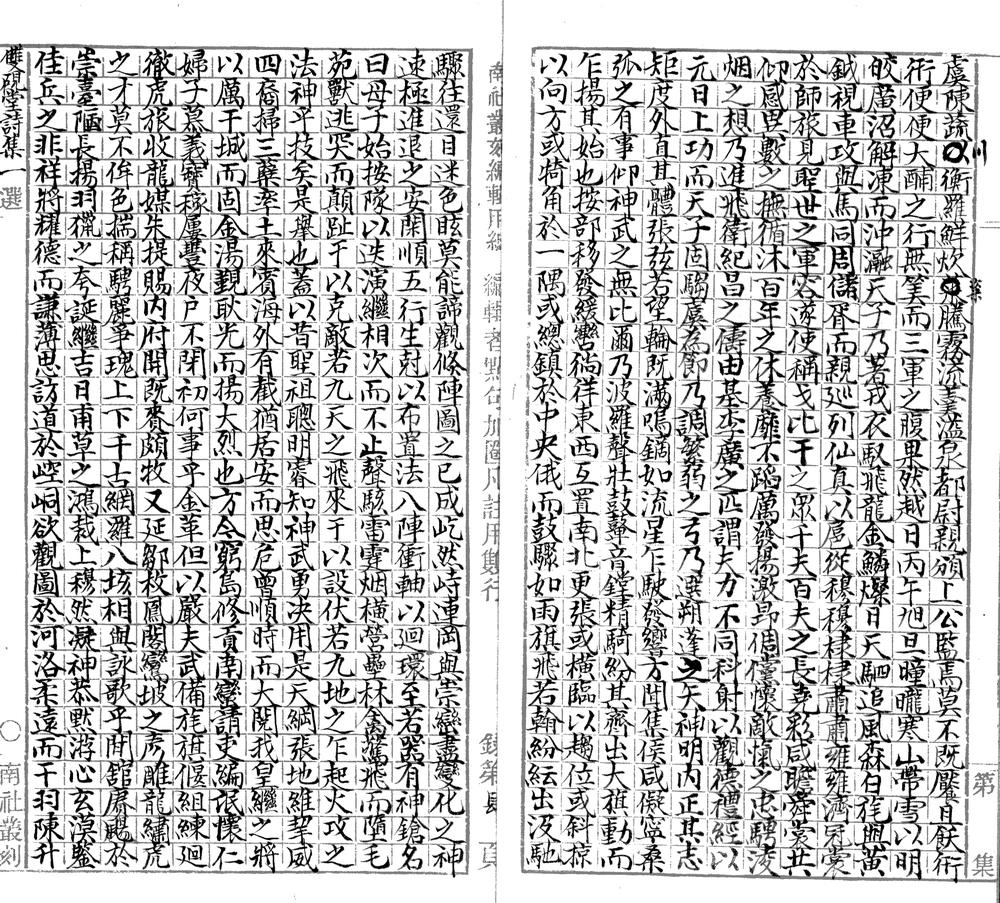 盧陳蔬川衡羅鮮炊粲騰霧流羹溢泉都尉親頒上公監焉莫不既饜且飫術
術便便大酺之行無筭而三軍之腹果然越日丙午旭旦曈曨寒山帶雪以明
皎廣沼解凍而沖瀜天子乃著戎衣馭飛龍金鱗爍日天駟追風森白旄與黃
鉞視車攻與馬同周儲胥而親巡列仙真以扈從穆穆棣棣肅肅雍雍濟濟冠裳
於師旅見聖世之軍容遂使稱戈比干之眾千夫百夫之長堯彩咸瞻舜裳共
仰感恩數之撫循沐百年之休養靡不蹈厲發揚激昂倜儻懷敵愾之忠騁凌
烟之想乃進飛衛紀昌之儔由基李廣之匹謂夫力不同科射以觀德禮經以
元日上功而天子固騶虞為節乃調繁弱之弓乃選朔蓬之矢神明內正其志
矩度外直其體張弦若望輪既滿鳴鏑如流星乍駛發響方聞集侯咸儗寧桑
弧之有事仰神武之無比爾乃波羅聲壯鼓鼙音鏜精騎紛其齊出大旗動而
乍揚其始也按部移發緩轡徜徉東西互置南北更張或橫臨以趨位或斜掠
以向方或犄角於一隅或總鎮於中央俄而鼓驟如雨旗飛若翰紛紜出沒馳
南社叢刻編輯用紙　編輯者點句加圈凡註用雙行　錄第　頁
驟往還目迷色眩莫能諦觀倏陣圖之已成屹然峙連岡與崇巒盡變化之神
速極進退之安閑順五行生尅以布置法八陣衝軸以迴環至若器有神鎗名
曰母子始按隊以迭演繼相次而不止聲駭雷霆烟橫營壘林禽驚飛而墮毛
苑獸逃哭而顛趾于以克敵若九天之飛來于以設伏若九地之乍起火攻之
法神乎技矣是舉也蓋以昔聖祖聰明睿知神武勇決用是天綱張地維挈威
四裔掃三蘗率土來賓海外有截猶居安而思危曾順時而大閱我皇繼之將
以厲干城而固金湯覲耿光而揚大烈也方令窮島修貢南蠻請吏編氓懷仁
婦子慕義寶稼屢豐夜戶不閉初何事乎金革但以嚴夫武備旄旗偃組練迴
徹虎旅收龍媒朱提賜內府開既賚頗牧又延鄒枚鳳閣鸞坡之彥雕龍繡虎
之才莫不侔色揣稱騁麗爭瑰上下千古網羅八垓相與詠歌乎閒館賡颺於
崇臺陋長楊羽獵之夸誕繼吉日甫草之鴻裁上穆然凝神恭默游心玄漠鑒
佳兵之非祥將耀德而謙薄思訪道於崆峒欲觀圖於河洛柔遠而干羽陳升
雙硯堂詩集一選　〇南社叢刻
第　集